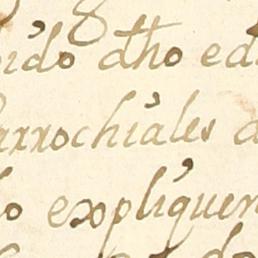 ido dho edi
arrochiales d
lo expliquen